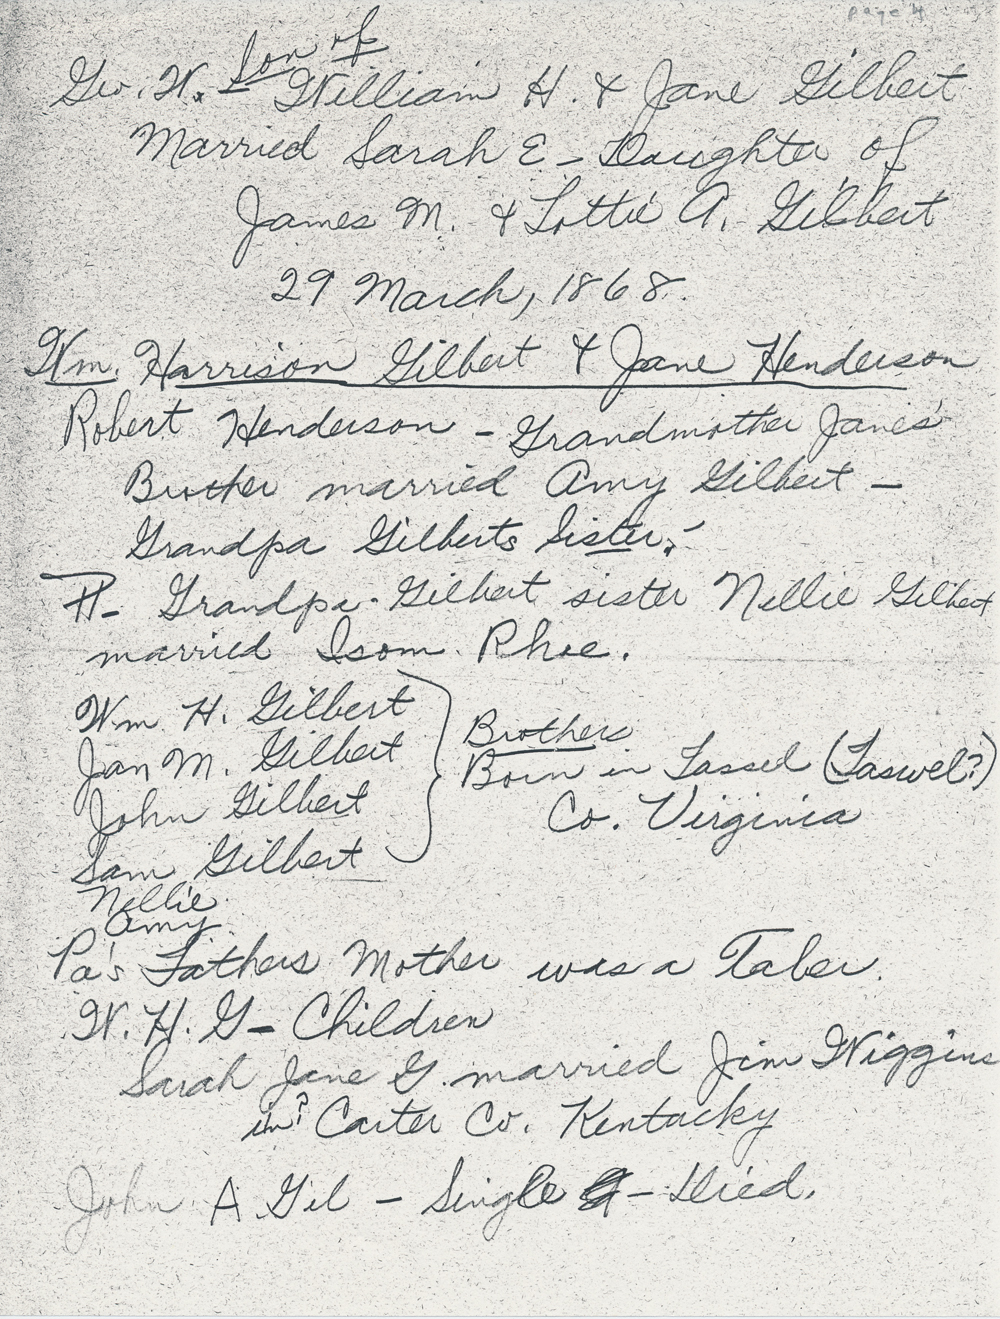 page 4
Geo. W. Son of William H. & Jane Gilbert
Married Sarah E - Daughter of
James M. & Lottie A. Gilbert
29 March, 1868.
Wm. Harrison Gilbert & Jane Henderson
Robert Henderson - Grandmother Janes'
Brother married Amy Gilbert -
Grandpa Gilberts Sister.
Grandpa Gilbert sister Nellie Gilbert
married Isom Rhoe.
Wm H. Gilbert
Jan M. Gilbert
John Gilbert
Sam Gilbert
Nellie
Amy
Brothers
Born in Tassel (Taswel?)
Co. Virginia
Pa's Fathers Mother was a Taber.
W. H. G - Children
Sarah Jane G. married Jim Wiggins
in? Carter Co. Kentucky
John A. Gil - Single - Died.